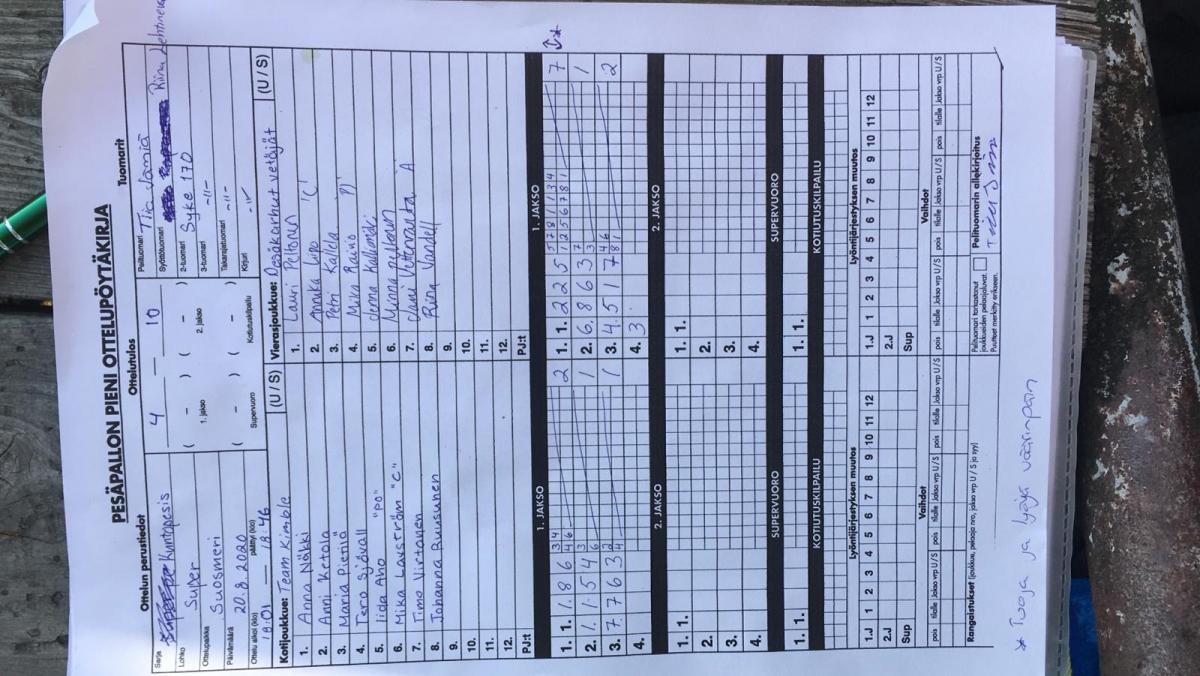 PESÄPALLON PIENI OTTELUPÖYTÄKIRJA
Ottelun perustiedot
Ottelutulos
Tuomarit
Sarja kuntopesis
Lohko Super
Ottelupaikka Suosmeri
Päivämäärä 20.8.2020
Ottelu alkoi (klo) 18.01 päättyi (klo) 18.46
4 – 10
( – ) ( – )
1. jakso 2. jakso
( – ) ( – )
Supervuoro Kotiutuskilpailu
Pelituomari Tiia
Syöttötuomari Riina
2-tuomari Syke 170
3-tuomari -11-
Takarajatuomari -11-
Kirjuri -11-
Kotijoukkue: Team Kimble (U / S)
1. Anna Näkki
2. Anni Ketola
3. Maria Pietilä
4. Tero Sjövall
5. Iida Aho "PO"
6. Mika Lavström "C"
7. Timo Virtanen
8. Johanna Ruusunen
9.
10.
11.
12.
PJ:t
Vierasjoukkue: Desäkarhut vetäjät (U / S)
1. Lauri Peltonen
2. Annika
3. Petri Kallela
4. Mika Rainio
5. Jenna
6. Minna Peltonen
7. Jani
8. Riina Vandell
9.
10.
11.
12.
PJ:t
1. JAKSO
1. JAKSO
1. 1. 1 8 6 2
2. 1 1 5 4 1
3. 7 7 6 3 1
4.
1. 1. 2 2 5 7
2. 6 8 6 3 1
3. 4 5 1 7 2
4. 3
2. JAKSO
2. JAKSO
1. 1.
2.
3.
4.
1. 1.
2.
3.
4.
SUPERVUORO
SUPERVUORO
1. 1.
1. 1.
KOTIUTUSKILPAILU
KOTIUTUSKILPAILU
Lyöntijärjestyksen muutos
Lyöntijärjestyksen muutos
1.J 1 2 3 4 5 6 7 8 9 10 11 12
2.J
Sup
1.J 1 2 3 4 5 6 7 8 9 10 11 12
2.J
Sup
Vaihdot
Vaihdot
pois tilalle Jakso vrp U / S pois tilalle Jakso vrp U / S pois tilalle Jakso vrp U / S
pois tilalle Jakso vrp U / S pois tilalle Jakso vrp U / S pois tilalle Jakso vrp U / S
Rangaistukset (joukkue, pelaaja nro, jakso, vrp U / S ja syy)
Pelituomari tarkastanut
joukkueiden pelaajaluvat.
Puutteet merkitty erikseen.
Pelituomarin allekirjoitus
* Tuoja ja lyöjä väärinpäin